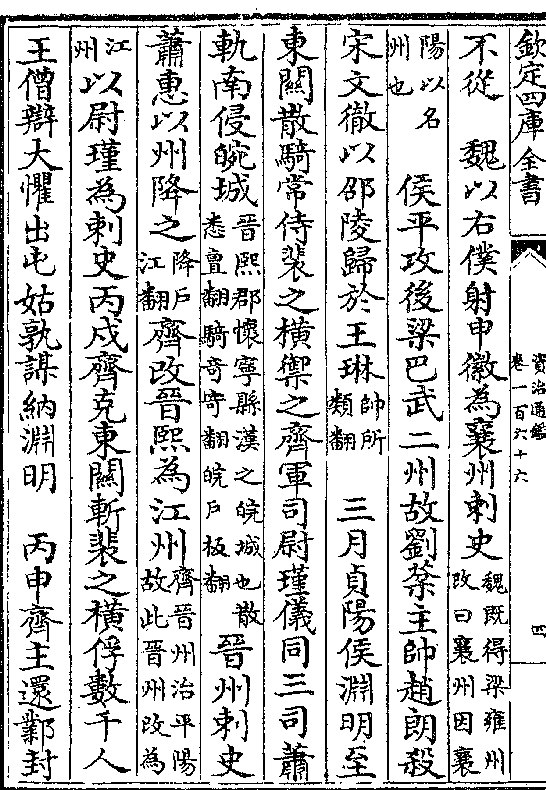 欽定四庫全書
資治通鑑
卷一百六十六
四
不從　魏以右僕射申徽為襄州刺史魏既得梁雍州改曰襄州因襄
陽以名州也　侯平攻後梁巴武二州故劉棻主帥趙朗殺
宋文徹以邵陵歸於王琳帥所類翻　三月貞陽侯淵明至
東關散騎常侍裴之橫禦之齊軍司尉瑾儀同三司蕭
軌南侵皖城晉熙郡懷寧縣漢之皖城也散悉亶翻騎奇寄翻皖戶板翻晉州刺史
蕭惠以州降之降戶江翻齊改晉熙為江州齊晉州治平陽故此晉州改為
江州以尉瑾為刺史丙戌齊克東關斬裴之橫俘數千人
王僧辯大懼出屯姑孰謀納淵明　丙申齊主還鄴封